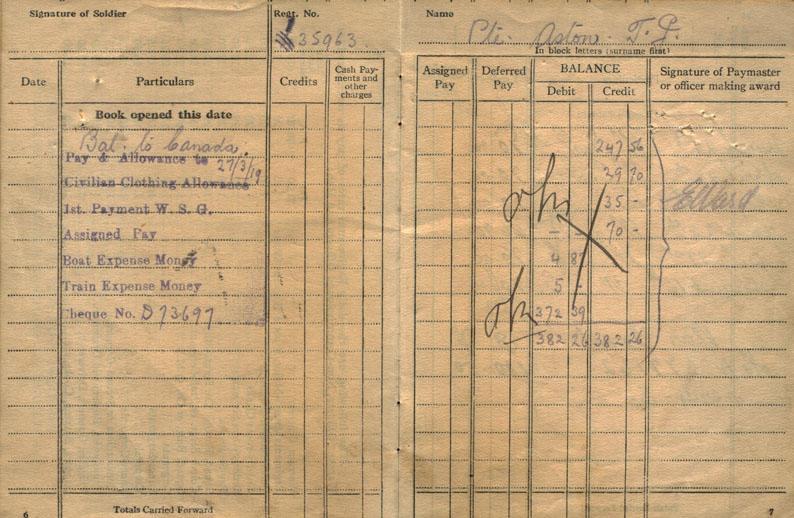 Signature of Soldier
Regt. No.
35963.
Date
Particulars
Credits
Cash Pay-
ments and
other
charges
Book opened this date
Bal. to Canada.
Pay & Allowance to 27/3/19
Civilian Clothing Allowance
1st. Payment W. S. G.
Assigned Pay
Boat Expense Money
Train Expense Money
Cheque No. D73697
Totals Carried Forward
6
Name
Pte. Aston. T. P.
In block letters (surname first)
Assigned
Pay
Deferred
Pay
BALANCE
Debit
Credit
Signature of Paymaster
or officer making award
247 56
29 70
35 -
- 70 -
4 87
5 -
372 39
382 26 382 26
7